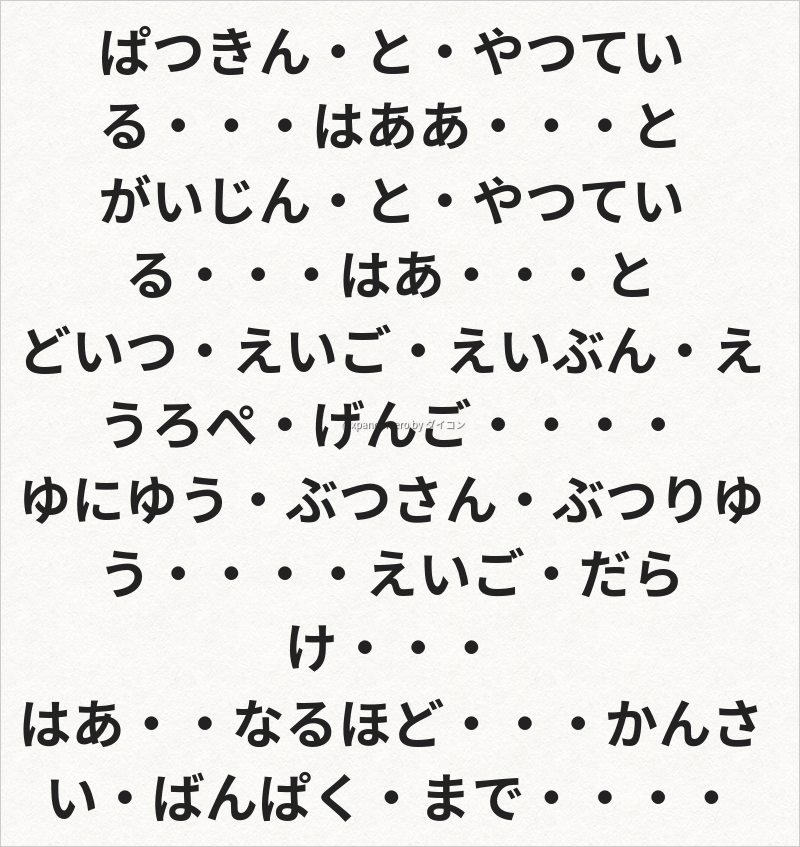 ぱつきん・と・やつてい
る・・・はああ・・・と
がいじん・と・やつてい
る・・・はあ・・・と
どいつ・えいご・えいぶん・え
うろぺ・げんご・・・・
ゆにゆう・ぶつさん・ぶつりゆ
う・・・・えいご・だら
け・・・
はあ・・なるほど・・・かんさ
い・ばんぱく・まで・・・・